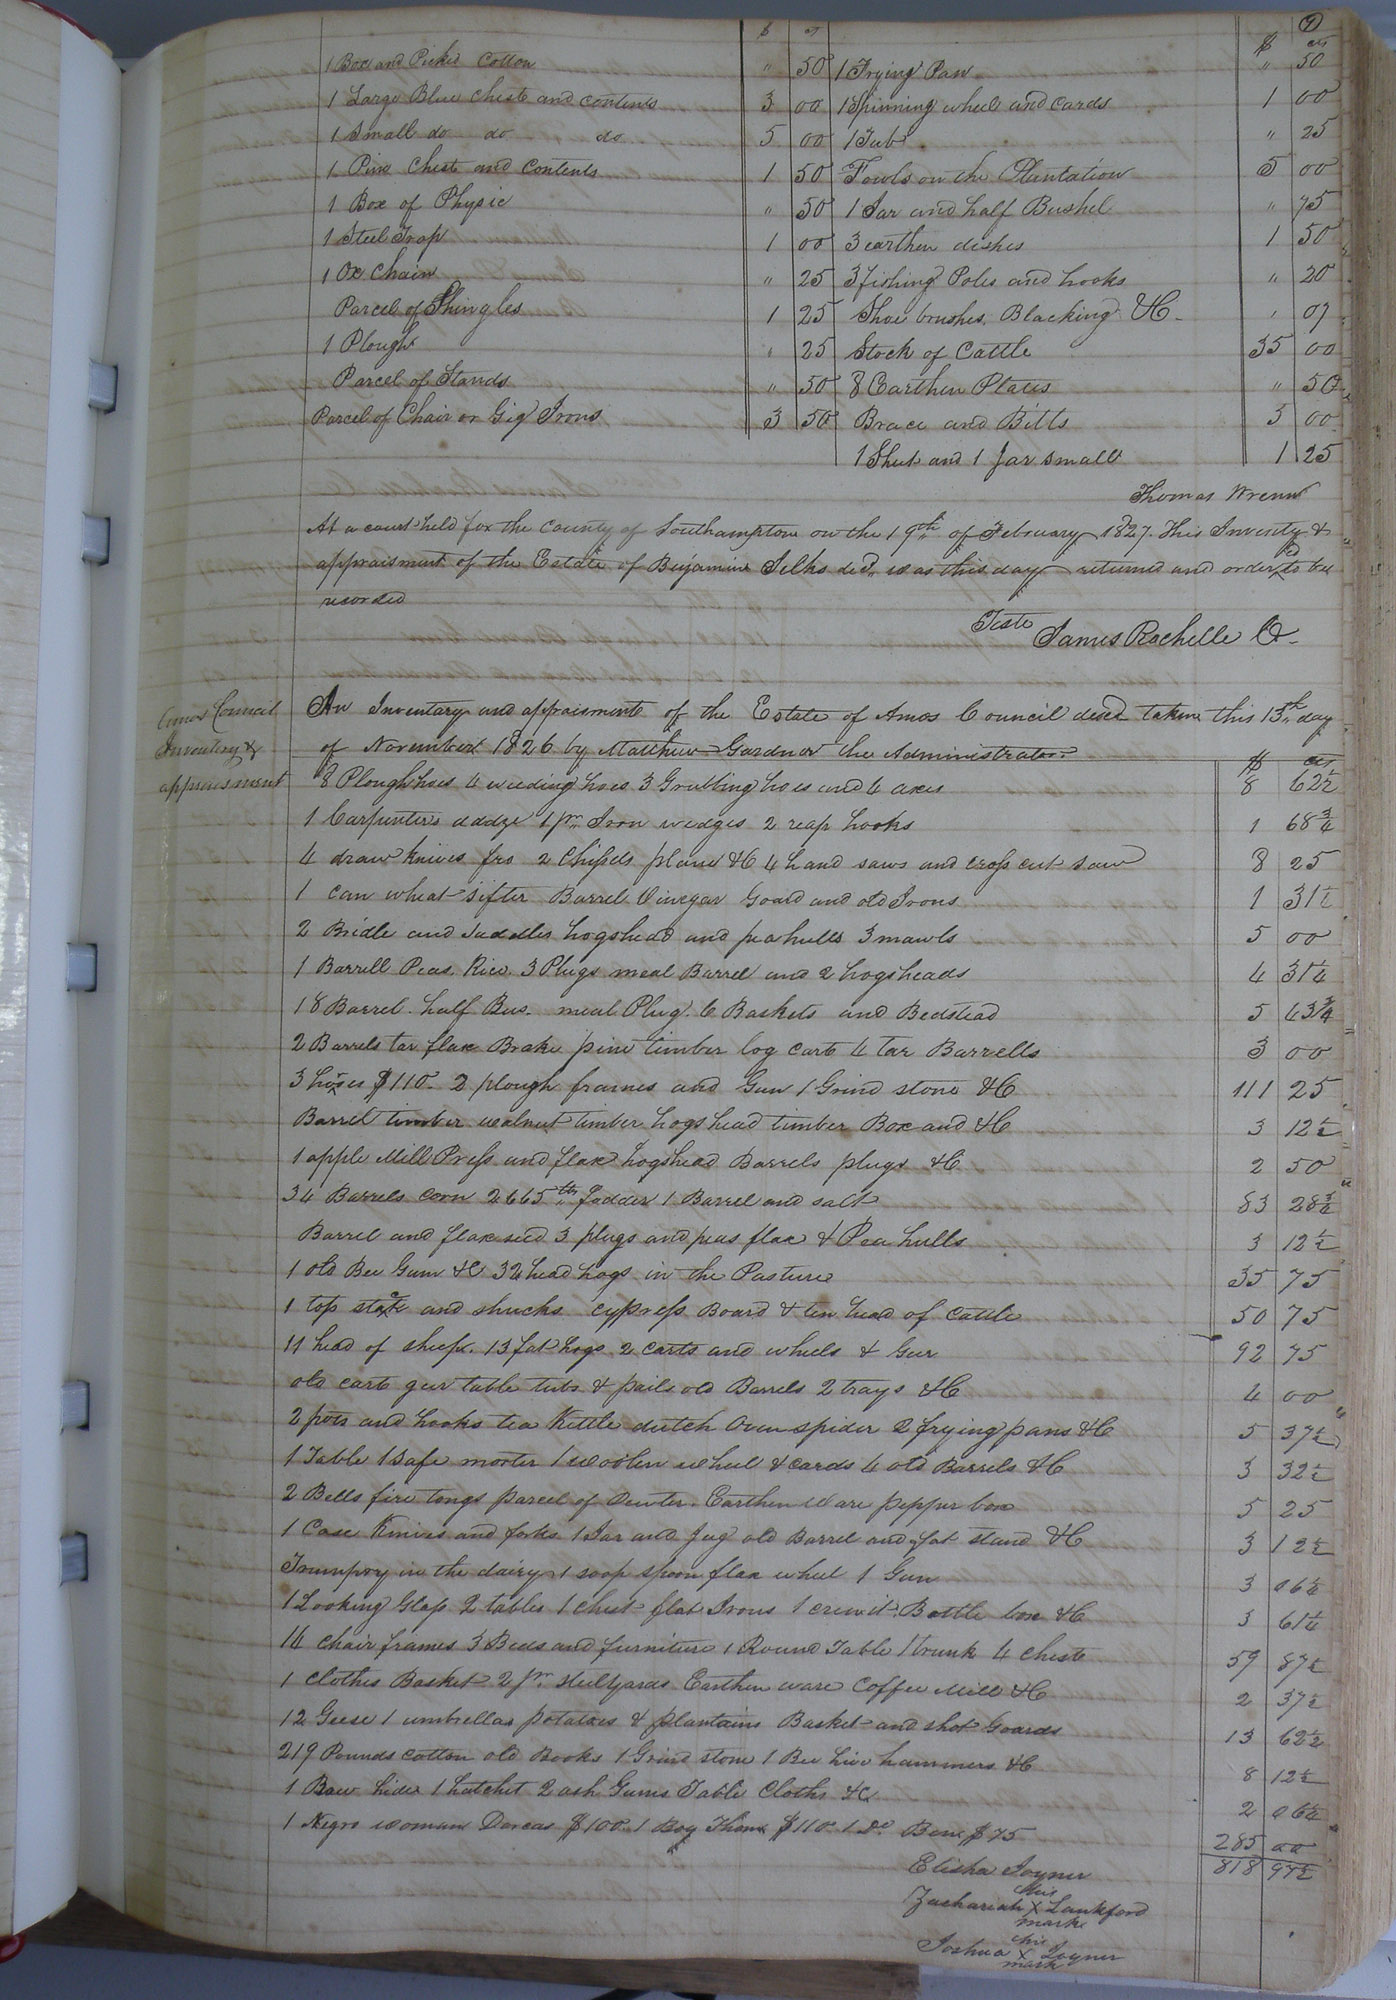 7
$ cts $ cts
1 Box and Picked Cotton " 50 1 Frying Pan " 50
1 Large Blue Chest and contents 3 00 1 Spinning wheel and cards 1 00
1 Small do do do 5 00 1 Tub " 25
1 Pine Chest and contents 1 50 Fowls on the Plantation 5 00
1 Box of Physic " 50 1 Jar and half Bushel " 75
1 Steel Trap 1 00 3 earthen dishes 1 50
1 Ox Chain " 25 3 fishing Poles and hooks " 20
Parcel of Shingles 1 25 Shoe brushes, Blacking &C " 07
1 Plough " 25 Stock of Cattle 35 00
Parcel of Stands " 50 8 Earthen Plates " 50
Parcel of Chair or Gig Irons 3 50 Brace and Bitts 5 00
1 Sheet and 1 Jar small 1 25
Thomas Wrenn
At a court held for the County of Southampton on the 19th of February 1827. This Inventy &
appraisment of the Estate of Benjamine decd was this day returned and orderd to be
recorded
Teste James Rochelle C
Amos Council
Inventory &
appraisment
An Inventary and appraisment of the Estate of Amos Council decd taken this 13th day
of November 1826 by Matthew Gardner the Administrator
$ cts
8 Plough hoes 4 weeding hoes 3 Grubbing hoes and 4 axes 8 62½
1 Carpenters addze 1 pr Iron wedges 2 reap hooks 1 68¾
4 draw knives fro 2 Chissels plane &C 4 hand saws and cross cut saw 8 25
1 can wheat sifter Barrel Vinegar Goard and old Irons 1 31¼
2 Bridle and Saddles hogshead and pea hulls 3 mawls 5 00
1 Barrell Peas. Rice. 3 Plugs meal Barrel and 2 hogsheads 4 31¼
18 Barrel. half Bus. meal Plug. 6 Baskets and Bedstead 5 43¾
2 Barrels tar flax Brake pine timber log cart 4 tar Barrells 3 00
3 horses $110 2 plough frames and Gun 1 Grind stone &C 111 25
Barrel timber walnut timber hogshead timber Box and &C 3 12½
1 apple Mill Press and flax hogshead Barrels plugs &C 2 50
34 Barrels corn 2665 lbs fodder 1 Barrel and salt 83 28¾
Barrel and flax seed 3 plugs and peas flax & Pea hulls 3 12½
1 old Bee Gum &C 32 head hogs in the Pasture 35 75
1 top stack and shucks cypress Board & ten head of Cattle 50 75
11 head of sheep. 13 fat hogs 2 carts and wheels & Gear 92 75
old cart gear table tubs & pails old Barrels 2 trays &C 4 00
2 pots and hooks tea Kettle dutch Oven spider 2 frying pans &C 5 37½
1 Table 1 safe morter 1 woollen wheel & cards 4 old Barrels &C 3 32½
2 Bells fire tongs parcel of Pewter. Earthen ware pepper box 5 25
1 Case Knives and forks 1 Jar and Jug old Barrel and fat stand &C 3 12½
Trumpry in the dairy 1 soop spoon flax wheel 1 Gun 3 06¼
1 Looking Glass 2 tables 1 chest flat Irons 1 crewit Bottle box &C 3 61¼
14 chair frames 3 Beds and furniture 1 Round Table 1 trunk 4 chests 59 87½
1 Clothes Basket 2 pr Steelyards Earthen ware Coffee Mill &C 2 37½
12 Geese 1 umbrella potatoes & plantains Basket and shot Goards 13 62½
219 Pounds cotton old Books 1 Grind stone 1 Bee hive hammers &C 8 12½
1 Raw hide 1 hatchet 2 ash Gums Table Cloths &C 2 06¼
1 Negro woman Dorcas $100. 1 Boy Thom $110. 1 Do Ben $75 285 00
818 97½
Elisha Joyner
his
Zachariah X Lankford
mark
his
Joshua X Joyner
mark